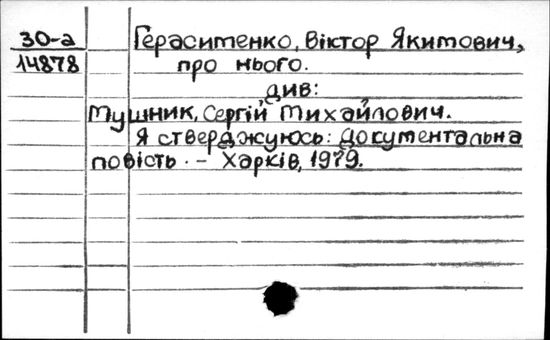 30-а
14878
Герасименко, Віктор Якимович,
про нього.
див:
Мушник, Сергій Михайлович.
Я стверджуюсь: документальна
повість. – Харків, 1979.